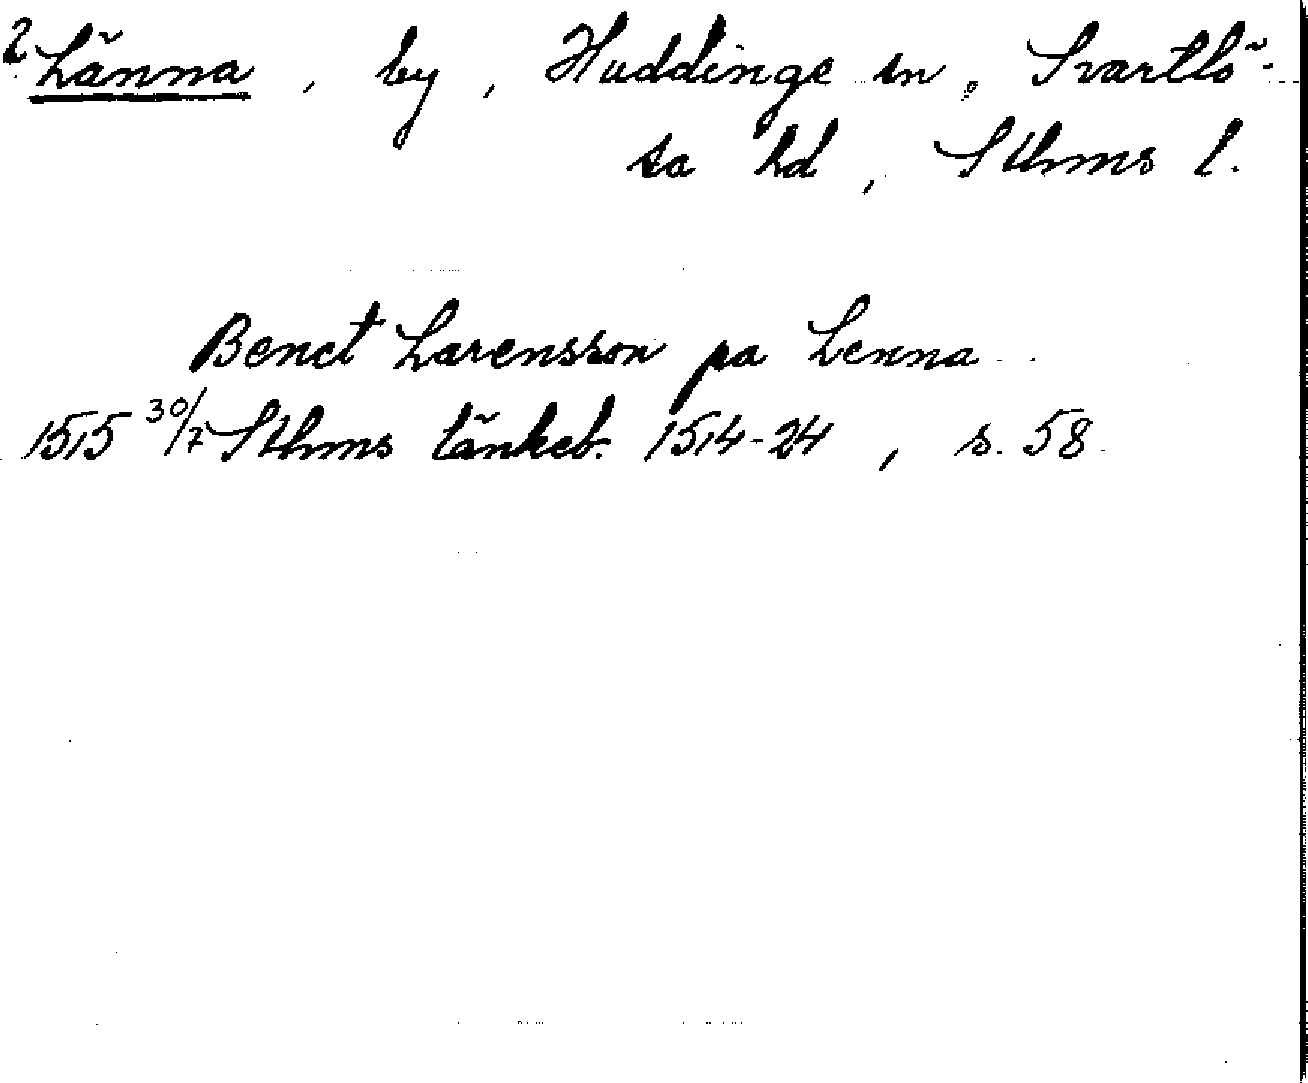 ? Länna, by, Huddinge sn, Svartlö-
sa hd, Sthms l.
Benct Larensson pa Lenna
1515 30/7 Sthms tänkeb. 1514-24, s. 58